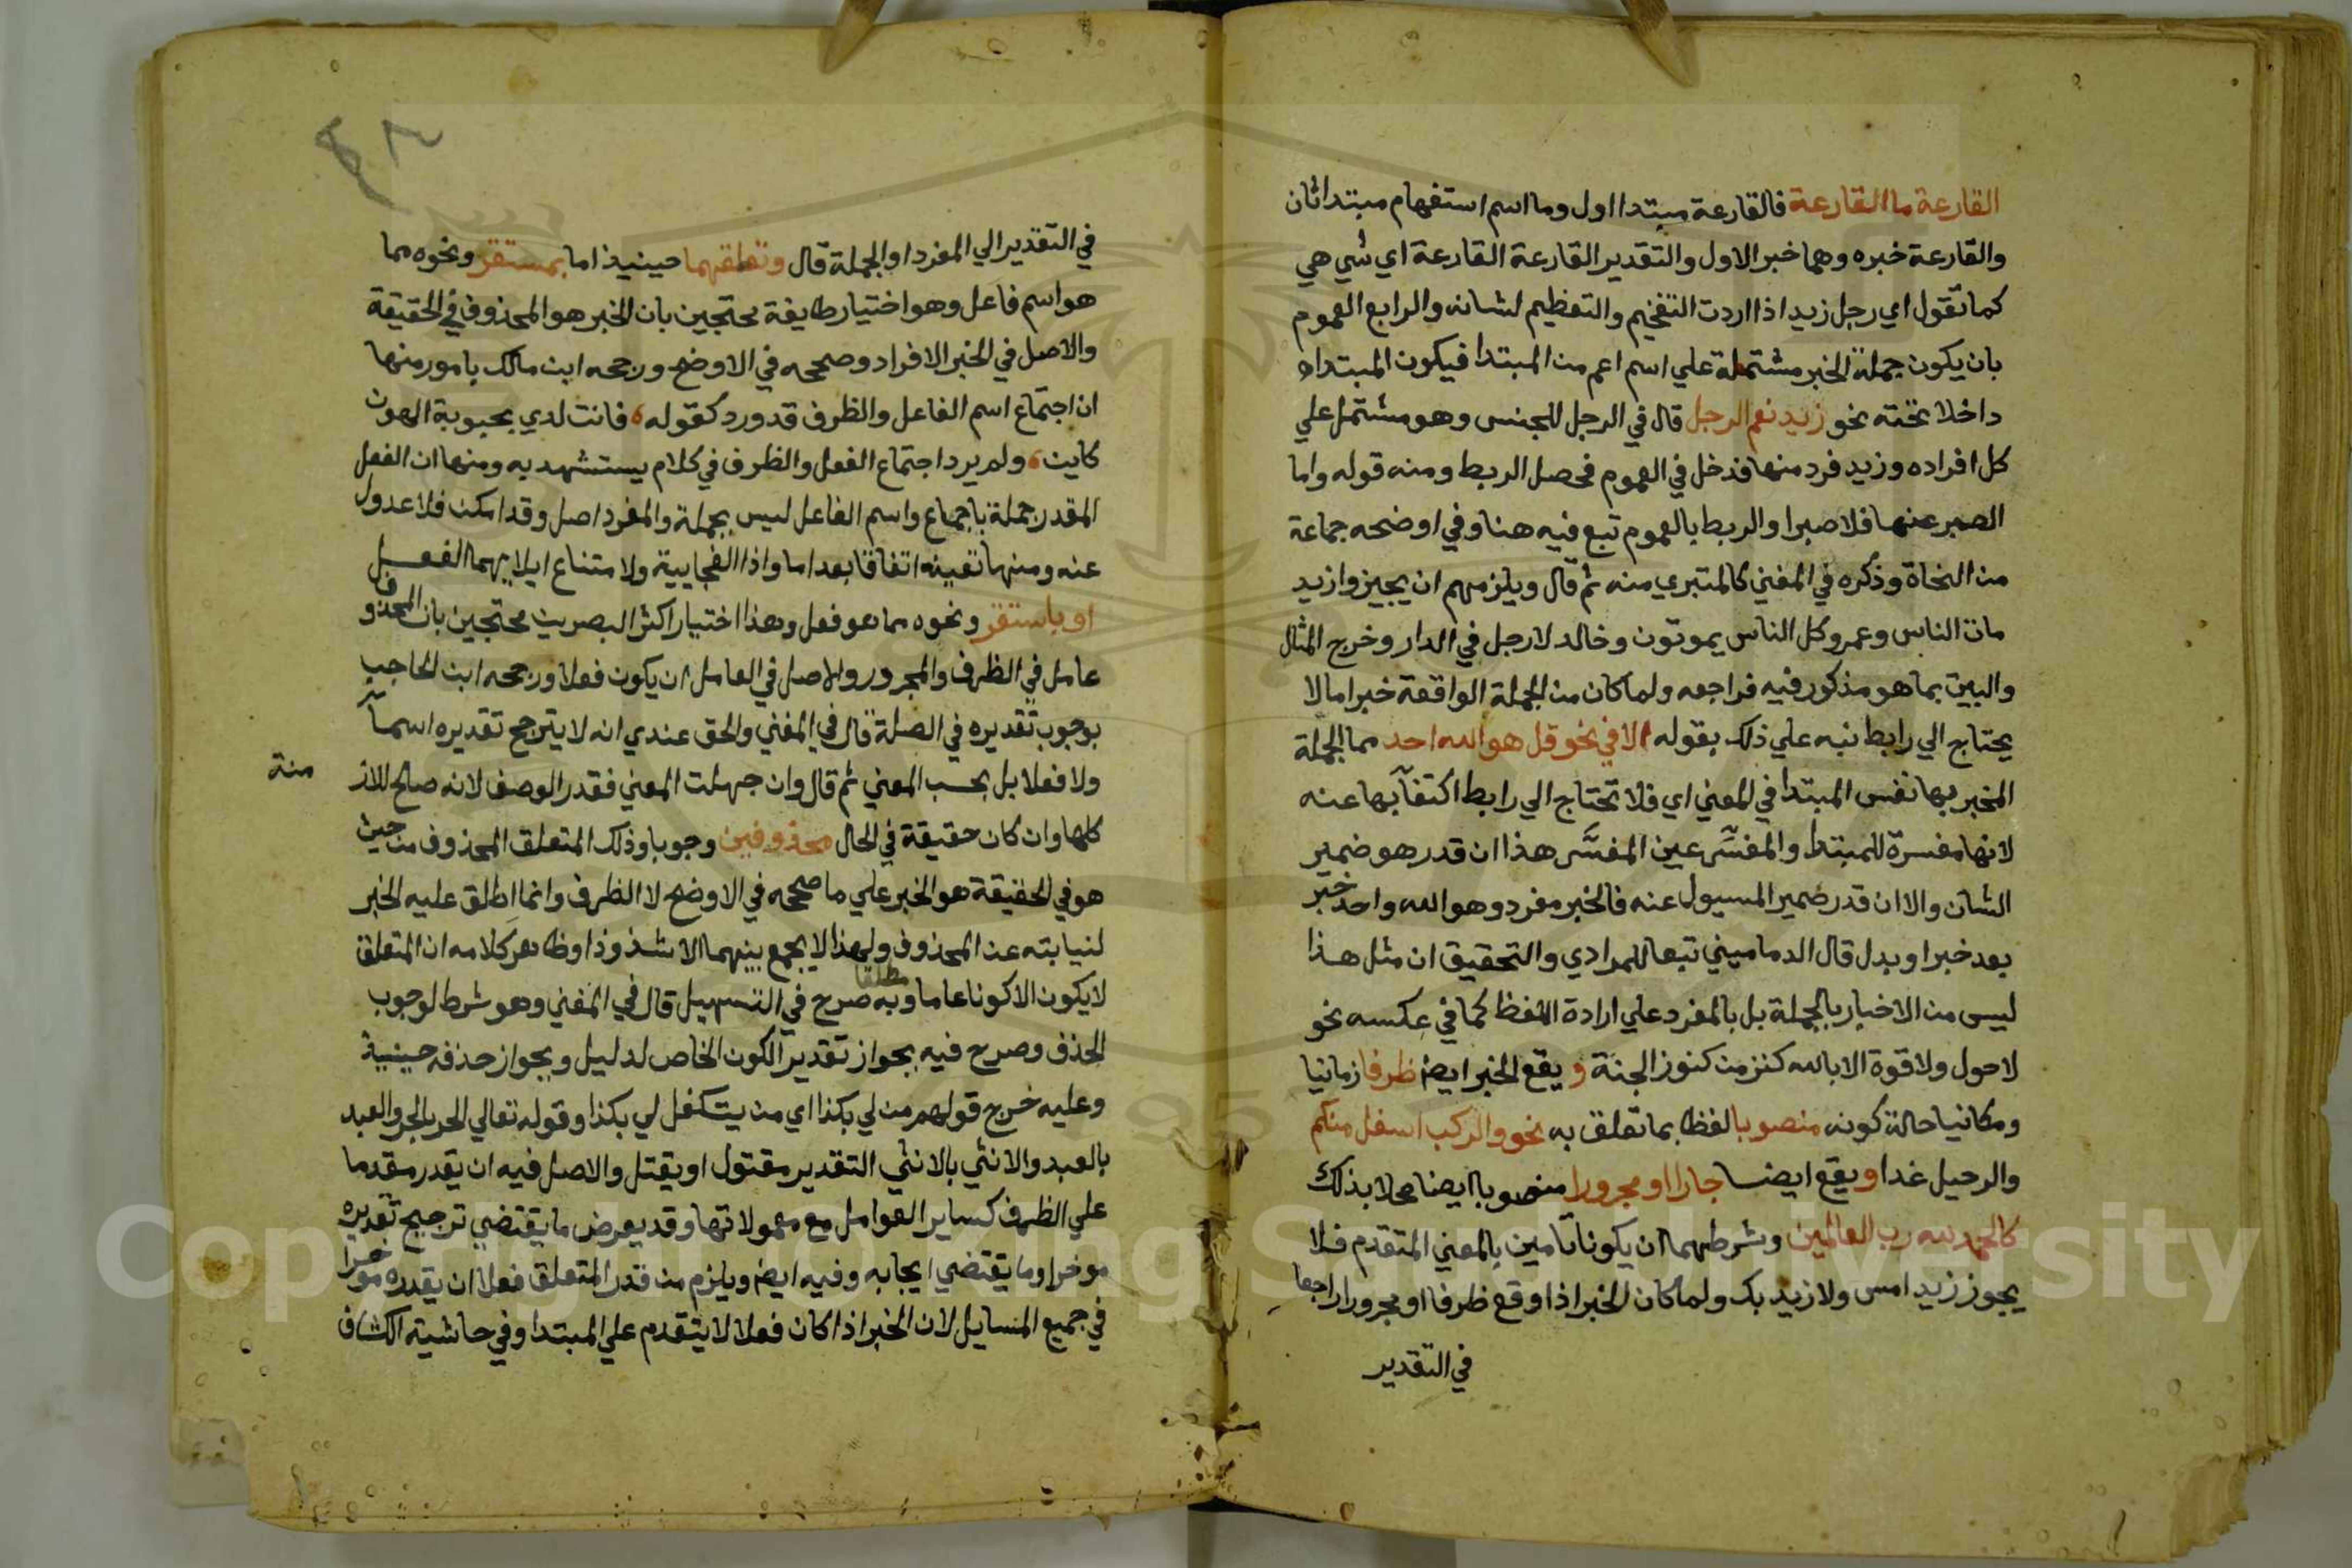 القارعة ما القارعة فالقارعة مبتدا اول وما اسم استفهام مبتدا ثان
والقارعة خبره وهما خبر الاول والتقدير القارعة القارعة اي شي هي
كما تقول اي رجل زيد اذا اردت التفخيم والتعظيم لشانه والرابع العموم
بان يكون جملة الخبر مشتملة علي اسم اعم من المبتدا فيكون المبتدا
داخلا تحته نحو زيد نعم الرجل قال في الرجل للجنس وهو مشتمل علي
كل افراده وزيد فرد منها فدخل في العموم فحصل الربط ومنه قوله واما
الصبر عنها فلا صبرا والربط بالعموم تبع فيه هنا وفي اوضحه جماعة
من النحاة وذكره في المغني كالمتبري منه ثم قال ويلزمهم ان يجيزوا زيد
مات الناس وعمرو كل الناس يموتون وخالد لا رجل في الدار وخرج المثال
والبيت بما هو مذكور فيه فراجعه ولما كان من الجملة الواقعة خبرا ما لا
يحتاج الي رابط نبه علي ذلك بقوله الا في نحو قل هو الله احد مما الجملة
المخبر بها نفس المبتدا في المعني اي فلا تحتاج الي رابط اكتفآ بها عنه
لانها مفسرة للمبتدا والمفسِّر عين المفسَّر هذا ان قدر هو ضمير
الشان والا ان قدر ضمير المسيول عنه فالخبر مفرد وهو الله واحد خبر
بعد خبر او بدل قال الدماميني تبعا للمرادي والتحقيق ان مثل هذا
ليس من الاخبار بالجملة بل بالمفرد علي ارادة اللفظ كما في عكسه نحو
لا حول ولا قوة الا بالله كنز من كنوز الجنة ويقع الخبر ايضا ظرفا زمانيا
ومكانيا حالة كونه منصوبا لفظا بما تعلق به نحو والركب اسفل منكم
والرحيل غدا ويقع ايضا جارا او مجرورا منصوبا ايضا محلا بذلك
كالحمد لله رب العالمين وشرطهما ان يكونا تامين بالمعني المتقدم فلا
يجوز زيد امس ولا زيد بك ولما كان الخبر اذا وقع ظرفا او مجرورا راجعا
في التقدير
في التقدير الي المفرد او الجملة قال وتعلقهما حينيذ اما بمستقر ونحوه مما
هو اسم فاعل وهو اختيار طايفة محتجين بان الخبر هو المحذوف في الحقيقة
والاصل في الخبر الافراد وصححه في الاوضح ورجحه ابن مالك بامور منها
ان اجتماع اسم الفاعل والظرف قد ورد كقوله فانت لدي بحبوبة الهون
كاين ولم يرد اجتماع الفعل والظرف في كلام يستشهد به ومنها ان الفعل
المقدر جملة باجماع واسم الفاعل ليس بجملة والمفرد اصل وقد امكن فلا عدول
عنه ومنها تعينه اتفاقا بعد اما واذا الفجاييية ولامتناع ايلايهما الفعل
او باستقر ونحوه مما هو فعل وهذا اختيار اكثر البصريين محتجين بان المحذوف
عامل في الظرف والمجرور والاصل في العامل ان يكون فعلا ورجحه ابن الحاجب
بوجوب تقديره في الصلة قال في المغني والحق عندي انه لا يترجح تقديره اسمآ
ولا فعلا بل بحسب المعني ثم قال وان جهلت المعني فقدر الوصف لانه صالح للاز
منة
كلها وان كان حقيقة في الحال محذوفين وجوبا وذلك المتعلق المحذوف من حيث
هو في الحقيقة هو الخبر علي ما صححه في الاوضح لا الظرف وانما اطلق عليه الخبر
لنيابته عن المحذوف ولهذا لا يجمع بينهما الا شذوذا وظاهر كلامه ان المتعلق
لا يكون الا كونا عاما مطلقا وبه صرح في التسهيل قال في المغني وهو شرط لوجوب
الحذف وصرح فيه بجواز تقدير الكون الخاص لدليل وبجواز حذفه حينيية
وعليه خرج قولهم من لي بكذا اي من يتكفل لي بكذا وقوله تعالي الحر بالحر والعبد
بالعبد والانثي بالانثي التقدير مقتول او يقتل والاصل فيه ان يقدر مقدما
علي الظرف كساير العوامل مع معمولاتها وقد يعرض ما يقتضي ترجيح تقديره
موخرا وما يقتضي ايجابه وفيه ايضا ويلزم من قدر المتعلق فعلا ان يقدره موخرا
في جميع المسايل لان الخبر اذا كان فعلا لا يتقدم علي المبتدا وفي حاشية الكشاف
Copyright © King Saud University